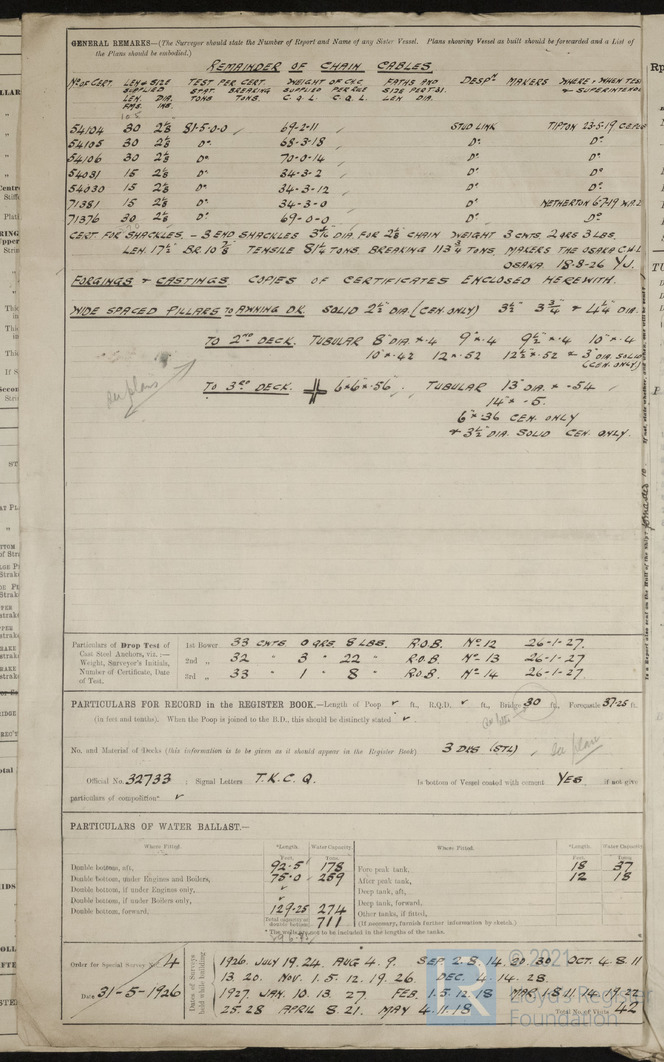 GENERAL REMARKS—(The Surveyor should state the Number of Report and Name of any Sister Vessel. Plans showing Vessel as built should be forwarded and a List of
the Plans should be embodied.)
REMAINDER OF CHAIN CABLES
No OF CERT. LEN & SIZE SUPPLIED LEN. DIA. FMS. INS. TEST PER CERT. STAT. BREAKING TONS. TONS. WEIGHT OF CEC SUPPLIED PER RULE C. Q. L. C. Q. L. FATHS AND SIZE PER T31. LEN DIA. DESPn. MAKERS WHERE & WHEN TES & SUPERINTEND
54104 30 2⅛ 81-5-0-0 69-2-11 STUD LINK TIPTON 23-5-19 C.E.PUG
54105 30 2⅛ Do. 68-3-18 Do. Do.
54106 30 2⅛ Do. 70-0-14 Do. Do.
54031 15 2⅛ Do. 34-3-2 Do. Do.
54030 15 2⅛ Do. 34-3-12 Do. Do.
71381 15 2⅛ Do. 34-3-0 Do. NETHERTON 6-7-19 W.A.L
71376 30 2⅛ Do. 69-0-0 Do. Do.
CERT. FOR SHACKLES - 3 END SHACKLES DIA FOR 2⅛ CHAIN WEIGHT 3 CWTS, 2 QRS 3 LBS,
LEN. 17½ BR. 10⅞ TENSILE 81¼ TONS, BREAKING 113¾ TONS, MAKERS THE OSAKA
OSAKA 18-8-26 Y.J.
FORGINGS & CASTINGS COPIES OF CERTIFICATES ENCLOSED HEREWITH.
WIDE SPACED PILLARS TO AWNING DK. SOLID 2½" DIA. (CEN. ONLY) 3½" 3¾" & 4¼" DIA.
TO 2ND DECK. TUBULAR 8" DIA × .4 9" × .4 9½" × .4 10" × .4
10" × .42 12" × .52 12½" × .52 & 3" DIA. SOLID
(CEN. ONLY)
see plans
TO 3RD DECK. 6×6×.56, TUBULAR 13" DIA. × .54
14" × .5.
6" × .36 CEN. ONLY
& 3½" DIA. SOLID CEN. ONLY.
Particulars of Drop Test of Cast Steel Anchors, viz.:— Weight, Surveyor's Initials, Number of Certificate, Date of Test.
1st Bower 33 CWTS. 0 QRS. 8 LBS. R.O.B. No 12 26-1-27.
2nd „ 32 " 3 " 22 " R.O.B. No 13 26-1-27
3rd „ 33 " 1 " 8 " R.O.B. No 14 26-1-27.
PARTICULARS FOR RECORD in the REGISTER BOOK.—Length of Poop ft., R.Q.D. ft., Bridge 30 ft., Forecastle 37.25 ft.
(in feet and tenths). When the Poop is joined to the B.D., this should be distinctly stated
No. and Material of Decks (this information is to be given as it should appear in the Register Book) 3 DKS (STL) see plan
Official No. 32733 ; Signal Letters T.K.C.Q. Is bottom of Vessel coated with cement YES if not give
particulars of composition
PARTICULARS OF WATER BALLAST.—
Where Fitted. *Length. Water Capacity. Where Fitted. *Length. Water Capacity
Feet. Tons. Feet. Tons.
Double bottom, aft, 92.5 178 Fore peak tank, 18 37
Double bottom, under Engines and Boilers, 75.0 259 After peak tank, 12 18
Double bottom, if under Engines only, Deep tank, aft,
Double bottom, if under Boilers only, Deep tank, forward,
Double bottom, forward, 129.25 274 Other tanks, if fitted,
Total capacity of double bottom 711 (If necessary, furnish further information by sketch.)
*The wells are not to be included in the lengths of the tanks.
Order for Special Survey No. 4
Date 31-5-1926
Dates of Surveys held while building
1926. JULY 19. 24. AUG 4. 9. SEP. 2. 8. 14. 20. 30. OCT. 4. 8. 11
13. 20. NOV. 1. 5. 12. 19. 26. DEC. 4. 14. 28.
1927. JAN. 10. 13. 27. FEB. 1. 5. 12. 18 MAR. 4. 8. 11. 14. 19. 22
25. 28 APRIL 8. 21. MAY 4. 11. 18
Total No. of Visits 42
© 2021
Lloyd's Register
Foundation